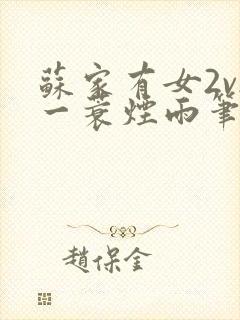 蘇家有女2v
一蓑煙雨筆
趙保金